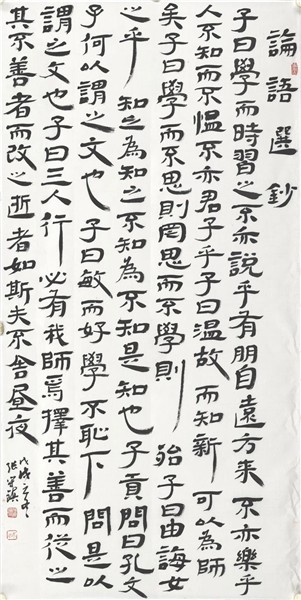 論語選鈔
子曰學而時習之不亦說乎有朋自遠方來不亦樂乎
人不知而不慍不亦君子乎子曰温故而知新可以為師
矣子曰學而不思則罔思而不學則殆子曰由誨女
之乎知之為知之不知為不知是知也子貢問曰孔文
子何以謂之文也子曰敏而好學不恥下問是以
謂之文也子曰三人行必有我師焉擇其善而從之
其不善者而改之逝者如斯夫不舍晝夜
戊戌